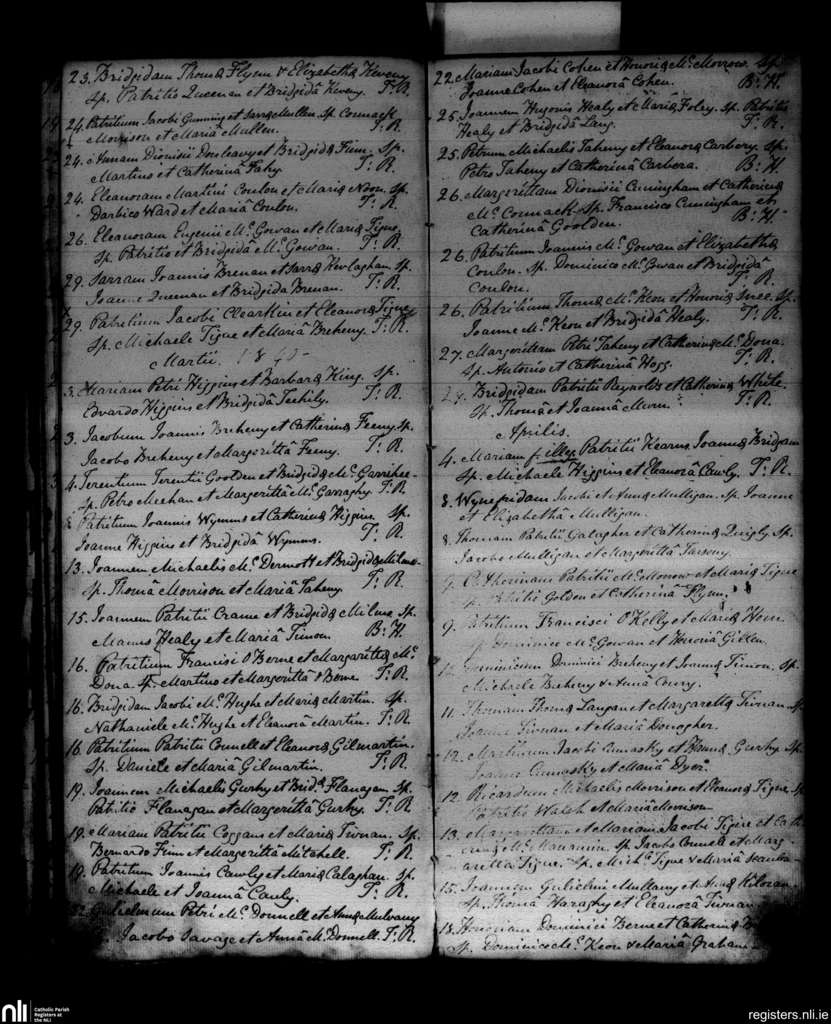 23. Bridgidam Thomæ Flynn & Elizabethæ Keveny
Sp. Patritio Queenan et Bridgidâ Keveny. T. R.
24. Patritium Jacobi Gunning et Sarræ Mullen. Sp. Cormack
Morrison et Mariâ Mullen. T. R.
24. Annam Dionisii Donleavy et Bridgidæ Finn. Sp.
Martino et Catherinâ Fahy. T. R.
24. Eleanoram Martini Conlon et Mariæ Noon. Sp.
Darbico Ward et Mariâ Conlon. T. R.
26. Eleanoram Eugenii Mc. Gowan et Mariæ Tigue
Sp. Patritio et Bridgidâ Mc. Gowan. T. R.
29. Sarram Joannis Brenan et Sarræ Sp.
Joanne Queenan et Bridgida Brenan. T. R.
29. Patritium Jacobi Clearkin et Eleanoræ Tigue
Sp. Michaele Tigue et Mariâ Breheny. T. R.
Martii.
3. Mariam Petri Higgins et Barbaræ King. Sp.
Edvardo Higgins et Bridgidâ T. R.
3. Jacobum Joannis Breheny et Catherinæ Feeny. Sp.
Jacobo Breheny et Margerittâ Feeny. T. R.
4. Terentium Terentii Goolden et Bridgidæ Mc.
Sp. Petro Meehan et Margerittâ Mc. Garraghy. T. R.
Patritium Joannis Wymms et Catherinæ Higgins. Sp.
Joanne Higgins et Bridgidâ Wymms. T. R.
13. Joannem Michaelis Mc. Dermott et Bridgidæ
Sp. Thomâ Morrison et Mariâ Taheny. T. R.
15. Joannem Patritii Crane et Bridgidæ Milmo. Sp.
Manus Healy et Mariâ Timon. B. H.
16. Patritium Francisi O'Berne et Margarittæ Mc.
Dona. Sp. Martino et Margerittâ O'Berne. T. R.
16. Bridgidam Jacobi Mc. Hughe et Mariæ Martin. Sp.
Nathaniele Mc. Hughe et Eleanorâ Martin. T. R.
16. Patritium Patritii Connell et Eleanoræ Gilmartin.
Sp. Daniele et Mariâ Gilmartin. T. R.
19. Joannem Michaelis Gurhy et Bridæ. Flanagan. Sp.
Patritio Flanagan et Margerittâ Gurhy. T. R.
19. Mariam Patritii Coggans et Mariæ Tivnan. Sp.
Bernardo Finn et Margerittâ Mitchell. T. R.
19. Patritium Joannis Cawly et Mariæ Calaghan. Sp.
Michaele et Joannâ Cawly. T. R.
22. Gulielmum Petri Mc. Donnell et Annæ Mulvany
Jacobo Savage et Annâ Mc. Donnell. T. R.
22. Mariam Jacobi Cohen et Honoriæ Mc. Morrow. Sp.
Joanne Cohen et Eleanorâ Cohen. B. H.
25. Joannem Hugonis Healy et Mariæ Foley. Sp. Patritio
Healy et Bridgidâ Lang. T. R.
25. Petrum Michaelis Taheny et Eleanoræ Carbery. Sp.
Petro Taheny et Catherinâ Carbera. B. H.
26. Margerittam Dionisii Cuningham et Catherinæ
Mc. Cormack. Sp. Francisco Cuningham et
Catherinâ Goolden. B. H.
26. Patritium Joannis Mc. Gowan et Elizabethæ
Conlon. Sp. Dominico Mc. Gowan et Bridgidâ
Conlon. T. R.
26. Patritium Thomæ Mc. Keon et Honoriæ Snee. Sp.
Joanne Mc. Keon et Bridgidâ Healy. T. R.
27. Margerittam Petri Taheny et Catherinæ Mc. Dona.
Sp. Antonio et Catherinâ Hogg. T. R.
Bridgidam Patritii Reynolds et Catherinæ White.
Sp. Thomâ et Joannâ T. R.
Aprilis.
4. Mariam filleg Patritii Kearns Joannæ Bridgam
Sp. Michaele Higgins et Eleanorâ Cawly. T. R.
8. Wynefridam Jacobi et Annæ Mulligan. Sp. Joanne
et Elizabethâ Mulligan.
8. Thomam Patritii Galagher et Catherinæ Quigly. Sp.
Jacobo Mulligan et Margerittâ
9. Catherinam Patritii Mc. Morrow et Mariæ Tigue
Sp. Patritio Golden et Catherinâ Flynn.
9. Patritium Francisci O'Kelly et Mariæ
Sp. Dominico Mc. Gowan et Honoriâ Gillen.
Dominicum Dominici Breheny et Joannæ Timon. Sp.
Michaele Breheny & Annâ
11. Thomam Thomæ Langan et Margarettæ Tivnan. Sp.
Joanne Tivnan et Mariâ Donagher.
12. Jacobi et Gurhy. Sp.
Joanne et Mariâ Dyer.
12. Ricardum Michaelis Morrison et Eleanoræ Tigue. Sp.
Patritio Walsh et Mariâ Morrison
13. Margarettam et Mariam Jacobi Tigue et
Sp. Jacobo Connell et Marg-
arettâ Tigue. Sp. Mich. Tigue & Mariâ
15. Joannem Gulielmi Mullany et Annæ Kiloran.
Sp. Thomâ Haraghy et Eleanorâ Tivnan
18. Honoriam Dominici Berne et Catherinæ
Sp. Dominico Mc. Keon & Mariâ Graham
nli
Catholic Parish
Registers at
the NLI
registers.nli.ie